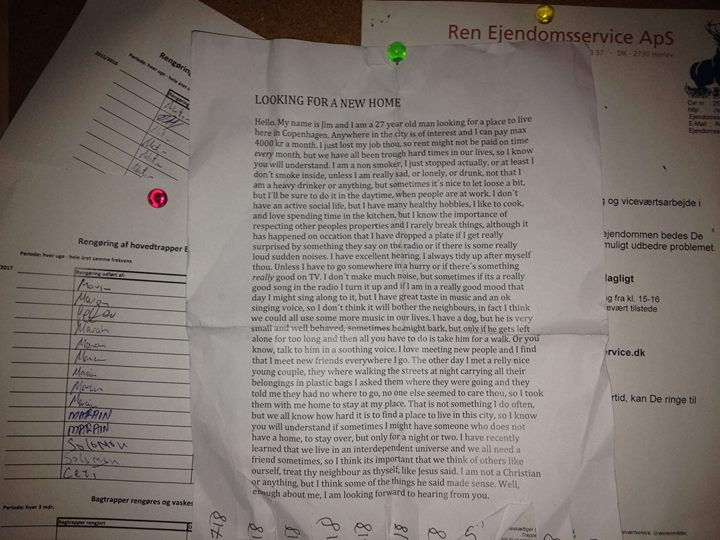 LOOKING FOR A NEW HOME
Hello. My name is Jim and I am a 27 year old man looking for a place to live
here in Copenhagen. Anywhere in the city is of interest and I can pay max
4000 kr a month. I just lost my job thou, so rent might not be paid on time
every month, but we have all been trough hard times in our lives, so I know
you will understand. I am a non smoker, I just stopped actually, or at least I
don´t smoke inside, unless I am really sad, or lonely, or drunk, not that I
am a heavy drinker or anything, but sometimes it´s nice to let loose a bit,
but I´ll be sure to do it in the daytime, when people are at work. I don´t
have an active social life, but I have many healthy hobbies, I like to cook,
and love spending time in the kitchen, but I know the importance of
respecting other peoples properties and I rarely break things, although it
has happened on occation that I have dropped a plate if I get really
surprised by something they say on the radio or if there is some really
loud sudden noises. I have excellent hearing. I always tidy up after myself
thou. Unless I have to go somewhere in a hurry or if there´s something
really good on TV. I don´t make much noise, but sometimes if its a really
good song in the radio I turn it up and if I am in a really good mood that
day I might sing along to it, but I have great taste in music and an ok
singing voice, so I don´t think it will bother the neighbours, in fact I think
we could all use some more music in our lives. I have a dog, but he is very
small and well behaved, sometimes he might bark, but only if he gets left
alone for too long and then all you have to do is take him for a walk. Or you
know, talk to him in a soothing voice. I love meeting new people and I find
that I meet new friends everywhere I go. The other day I met a relly nice
young couple, they where walking the streets at night carrying all their
belongings in plastic bags I asked them where they were going and they
told me they had no where to go, no one else seemed to care thou, so I took
them with me home to stay at my place. That is not something I do often,
but we all know how hard it is to find a place to live in this city, so I know
you will understand if sometimes I might have someone who does not
have a home, to stay over, but only for a night or two. I have recently
learned that we live in an interdependent universe and we all need a
friend sometimes, so I think its important that we think of others like
ourself, treat thy neighbour as thyself, like Jesus said. I am not a Christian
or anything, but I think some of the things he said made sense. Well,
enough about me, I am looking forward to hearing from you.
Ren Ejendomsservice ApS
57 - DK - 2730 Herlev
og viceværtsarbejde i
ejendommen bedes De
muligt udbedre problemet.
dagligt
g fra kl. 15-16
evært tilstede
ervice.dk
rtid, kan De ringe til
2015/2016
Periode: hver uge - hele året
Rengøring af hovedtrapper
Periode: hver uge - hele året samme frekvens
2017
Rengøring udført af:
Marah
MARAIN
MARAIN
Solomon
Solomon
Bagtrapper rengøres og vaskes
Periode: hver 3 mdr.
Bagtrapper rengjort